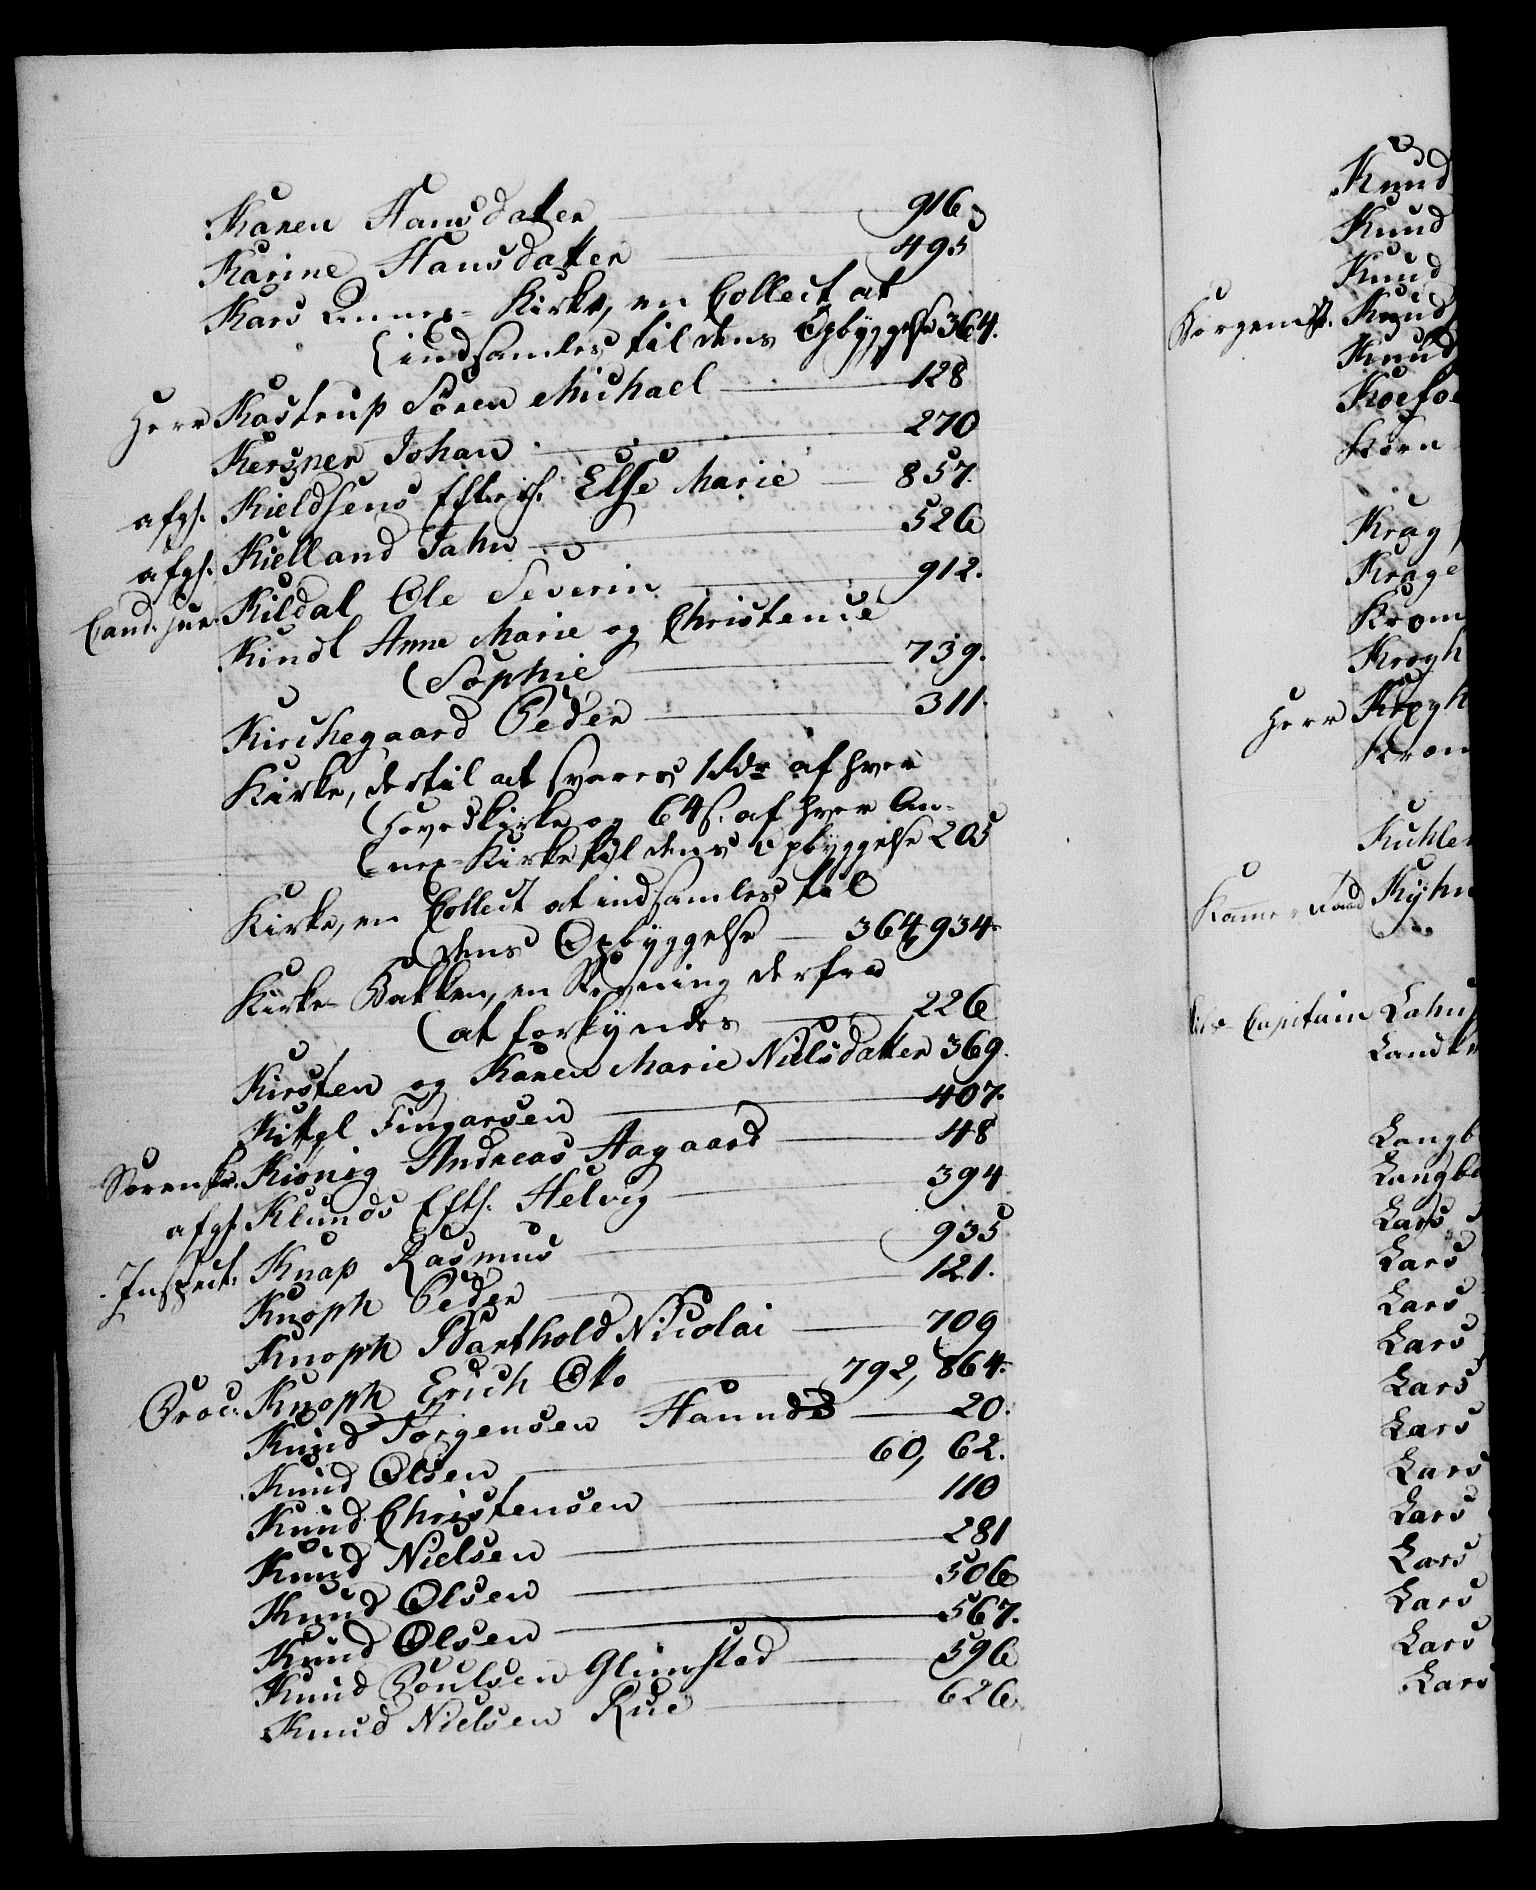 Karen Hansdatter 916.
Karine Hansdatter 495
Kars Annex-Kirke, en Collect at
indsamles til dens Opbyggelse 364.
Herr Kastrup Sören Michael 128
Kersner Johan 270
afgl. Kieldsens Efterl. Else Marie 857.
afgl. Kielland Jahn 526
Cand. jur. Kildal Ole Severin 912.
Kindl Anne Marie og Christence
Sophie 739.
Kirchegaard Peder 311.
Kirke, dertil at svares 1 Rdr af hver
Hovedkirke og 64 s. af hver An-
nex-Kirke til dens Opbyggelse 205
Kirke, en Collect at indsamles til
dens Opbyggelse 364, 934.
Kirke-Bakken, en Regning derfra
at forkyndes 226
Kirsten og Karen Marie Nielsdatter 369.
Kittel Fingarsen 407.
Sorenskr. Kiönig Andreas Aagaard 48
afgl. Klunds Eftl. Helvig 394
Inspect. Knap Rasmus 935
Knoph Peder 121.
Knoph Barthold Nicolai 709
Proc. Knoph Erich Otto 792, 864.
Knud Jörgensen 20.
Knud Olsen 60, 62.
Knud Christensen 110
Knud Nielsen 281
Knud Olsen 506
Knud Olsen 567.
Knud Poulsen Glimstad 596
Knud Nielsen Rue 626
Knud
Knud
Knud
Borgemstr. Knud
Knud
Koefo
Korn
Krag
Krage
Krom
Krogh
Herr Krogh
Kron
Kuhle
Kammerraad Kyhn
Capitain Lahn
Landk
Langb
Langb
Lars
Lars
Lars
Lars
Lars
Lars
Lars
Lars
Lars
Lars
Lars
Lars